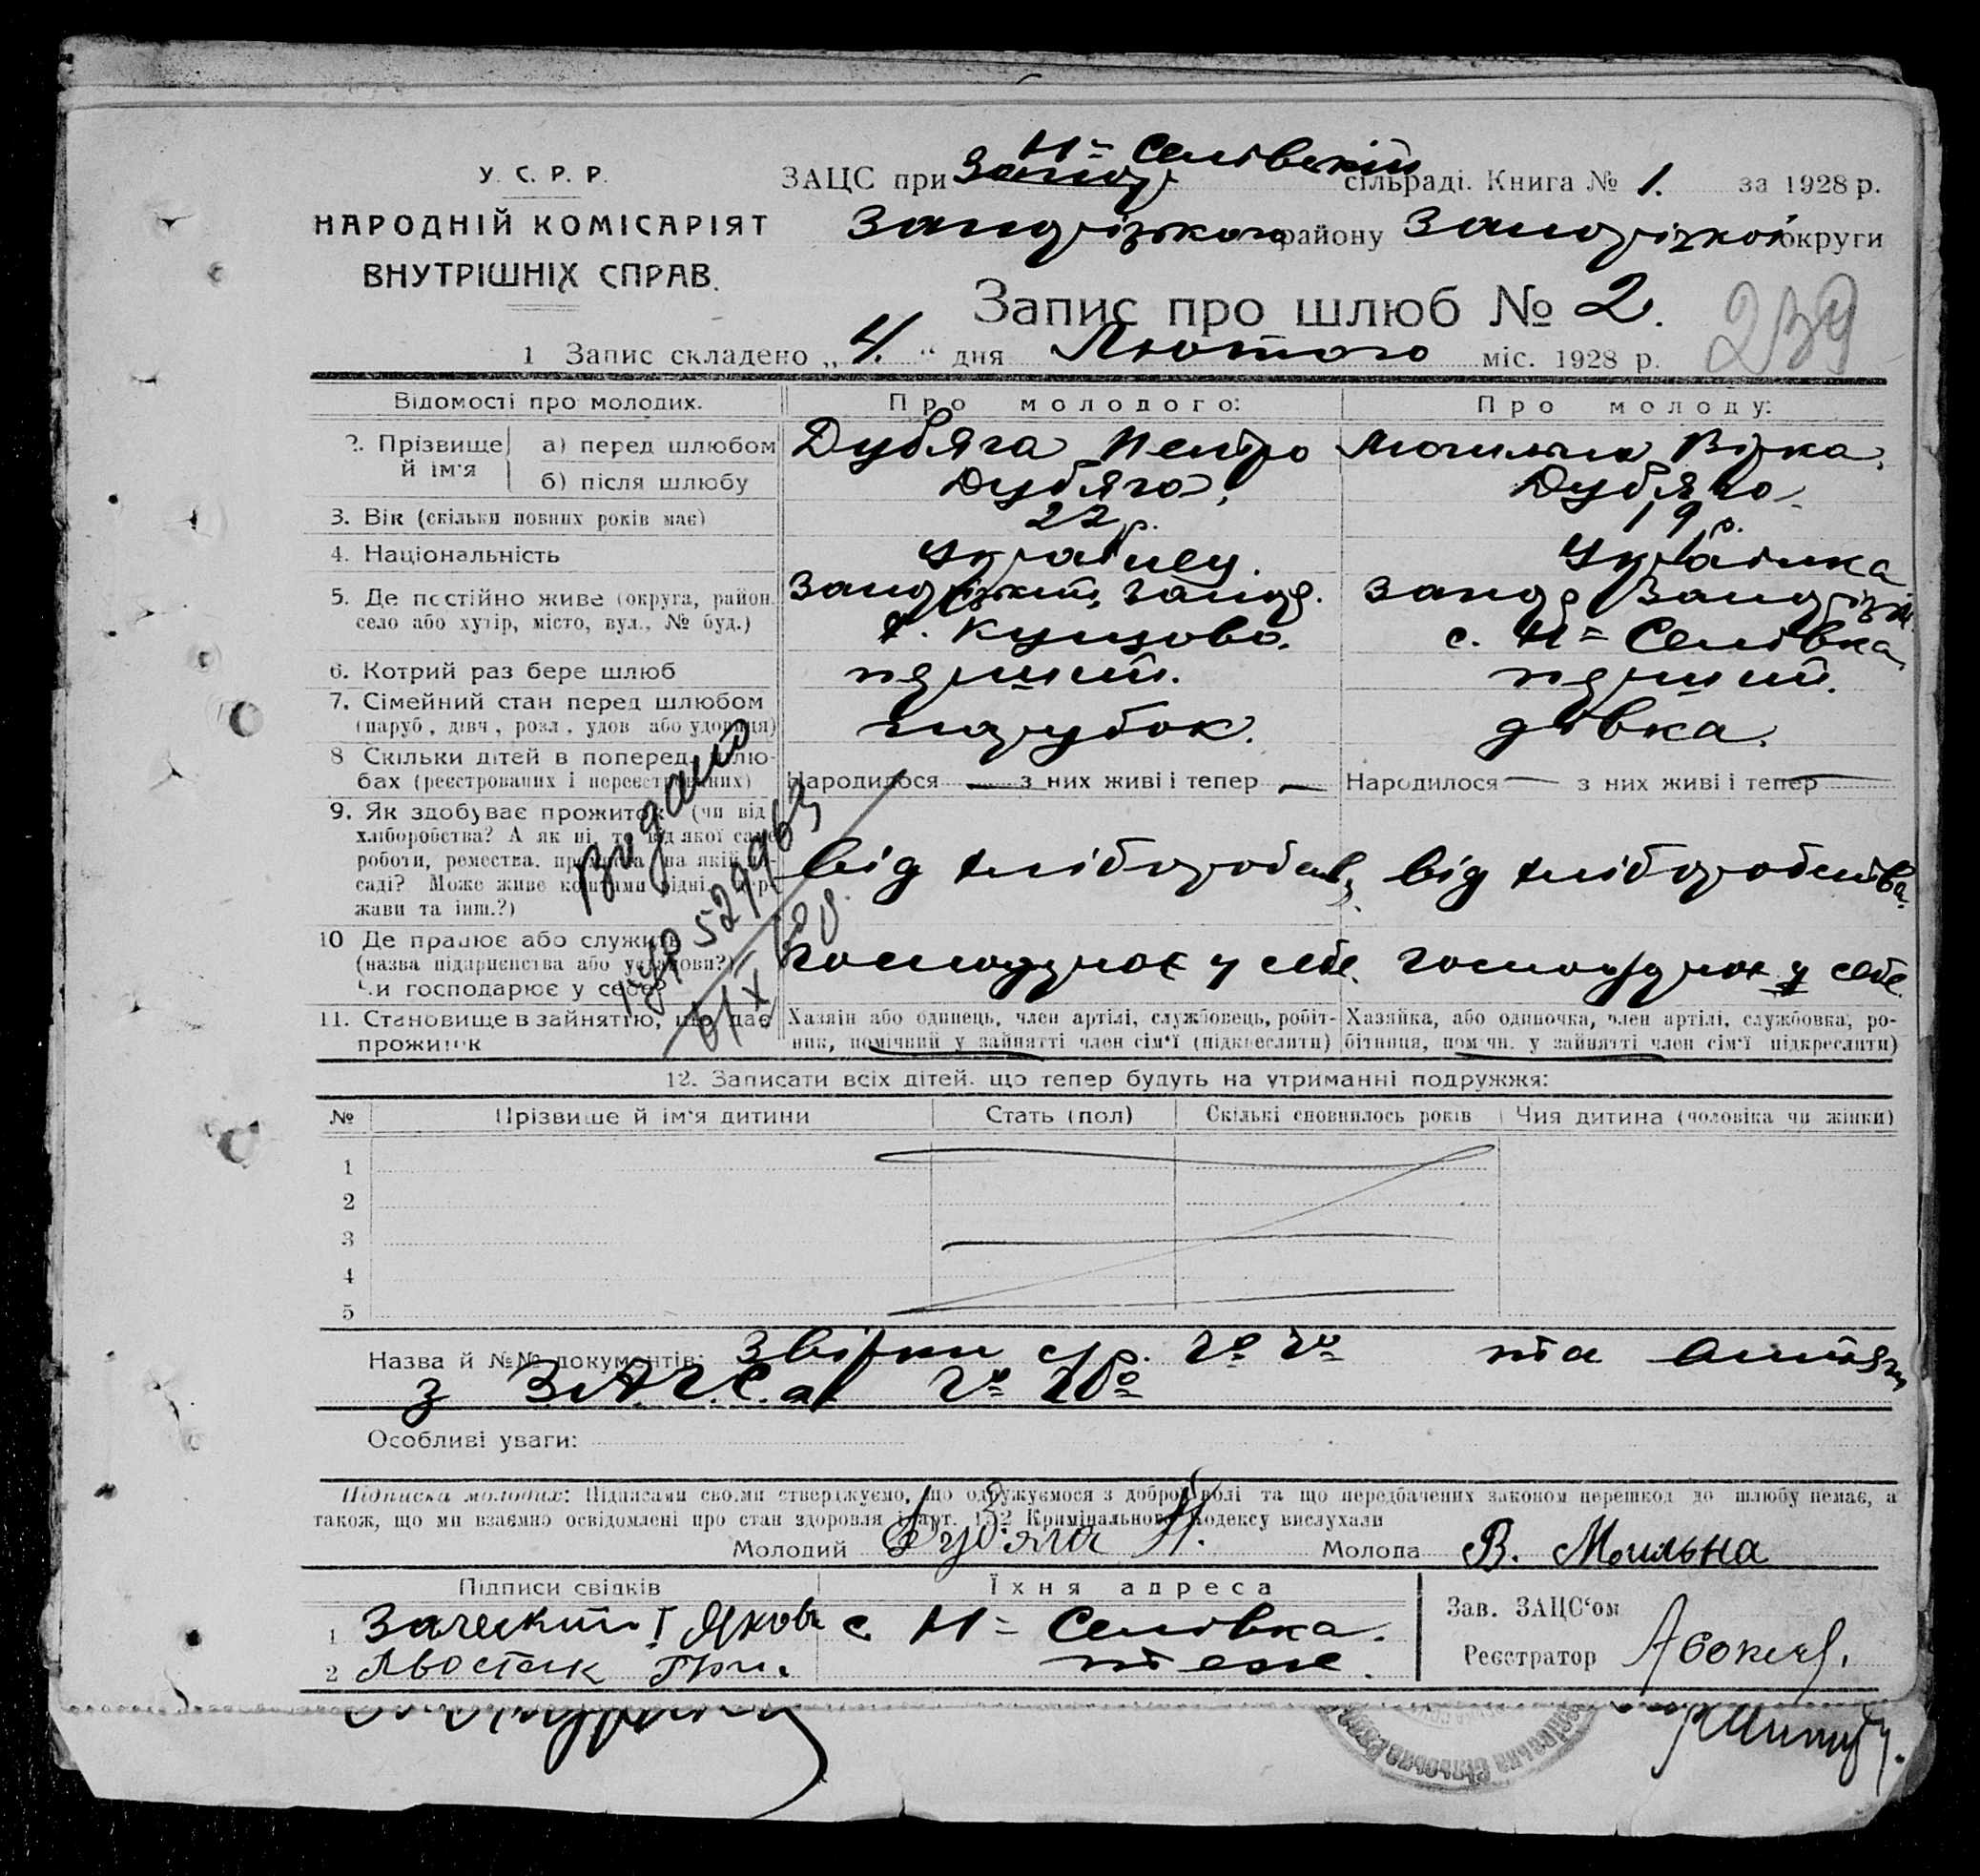 У. С. Р. Р.
НАРОДНІЙ КОМІСАРІЯТ
ВНУТРІШНІХ СПРАВ.
ЗАЦС при Н=Селівській сільраді. Книга № 1. за 1928 р.
Запорізького району Запорізкої округи
Запис про шлюб № 2.
239
1 Запис складено „4.“ дня Лютого міс. 1928 р.
Відомості про молодих.
Про молодого:
Про молоду:
2. Прізвище й ім'я
а) перед шлюбом
Дубяга Петро
Вірка.
б) після шлюбу
Дубяга.
Дубяга
3. Вік (скільки повних років має)
22 р.
19 р.
4. Національність
Україн
Українка
5. Де постійно живе (округа, район,
село або хутір, місто, вул., № буд.)
Запор.
х. Кущово.
Запор
с. Н=Селівка
6. Котрий раз бере шлюб
перший.
перший.
7. Сімейний стан перед шлюбом
(паруб, дівч, розл, удов або удовиця)
парубок.
дівка.
8 Скільки дітей в поперед. шлю-
бах (реєстрованих і нереєстрованих)
Народилося — з них живі і тепер —
Народилося — з них живі і тепер —
9. Як здобуває прожиток (чи від
хліборобства? А як ні, то від якої саме
роботи, ремества, промисла, на якій по-
саді? Може живе коштами рідні, дер-
жави та інш.?)
від хлібороб
від хліборобства.
10 Де працює або служить
(назва підприємства або установи?)
Чи господарює у себе?
господарює у себе.
господарює у себе.
Видано
529963
11. Становище в зайняттю, що дає
прожиток
Хазяін або одинець, член артілі, службовець, робіт-
ник, помічний у зайнятті член сім'ї (підкреслити)
Хазяйка, або одиночка, член артілі, службовка, ро-
бітниця, помічн. у зайнятті член сім'ї підкреслити)
12. Записати всіх дітей, що тепер будуть на утриманні подружжя:
№ Прізвище й ім'я дитини Стать (пол) Скількі сповнилось років Чия дитина (чоловіка чи жінки)
1
2
3
4
5
Назва й №№ документів: та
з З.А.Г.С.а
Особливі уваги:
Підписка молодих: Підписами своїми стверджуємо, що одружуємося з доброї волі та що передбачених законом перешкод до шлюбу немає, а
також, що ми взаємно освідомлені про стан здоровля і арт. 152 Кримінального Кодексу вислухали
Молодий Дубяга П. Молода В. Могильна
Підписи свідків
Їхня адреса
1
с Н=Селівка.
2
теж.
Зав. ЗАЦС'ом
Реєстратор